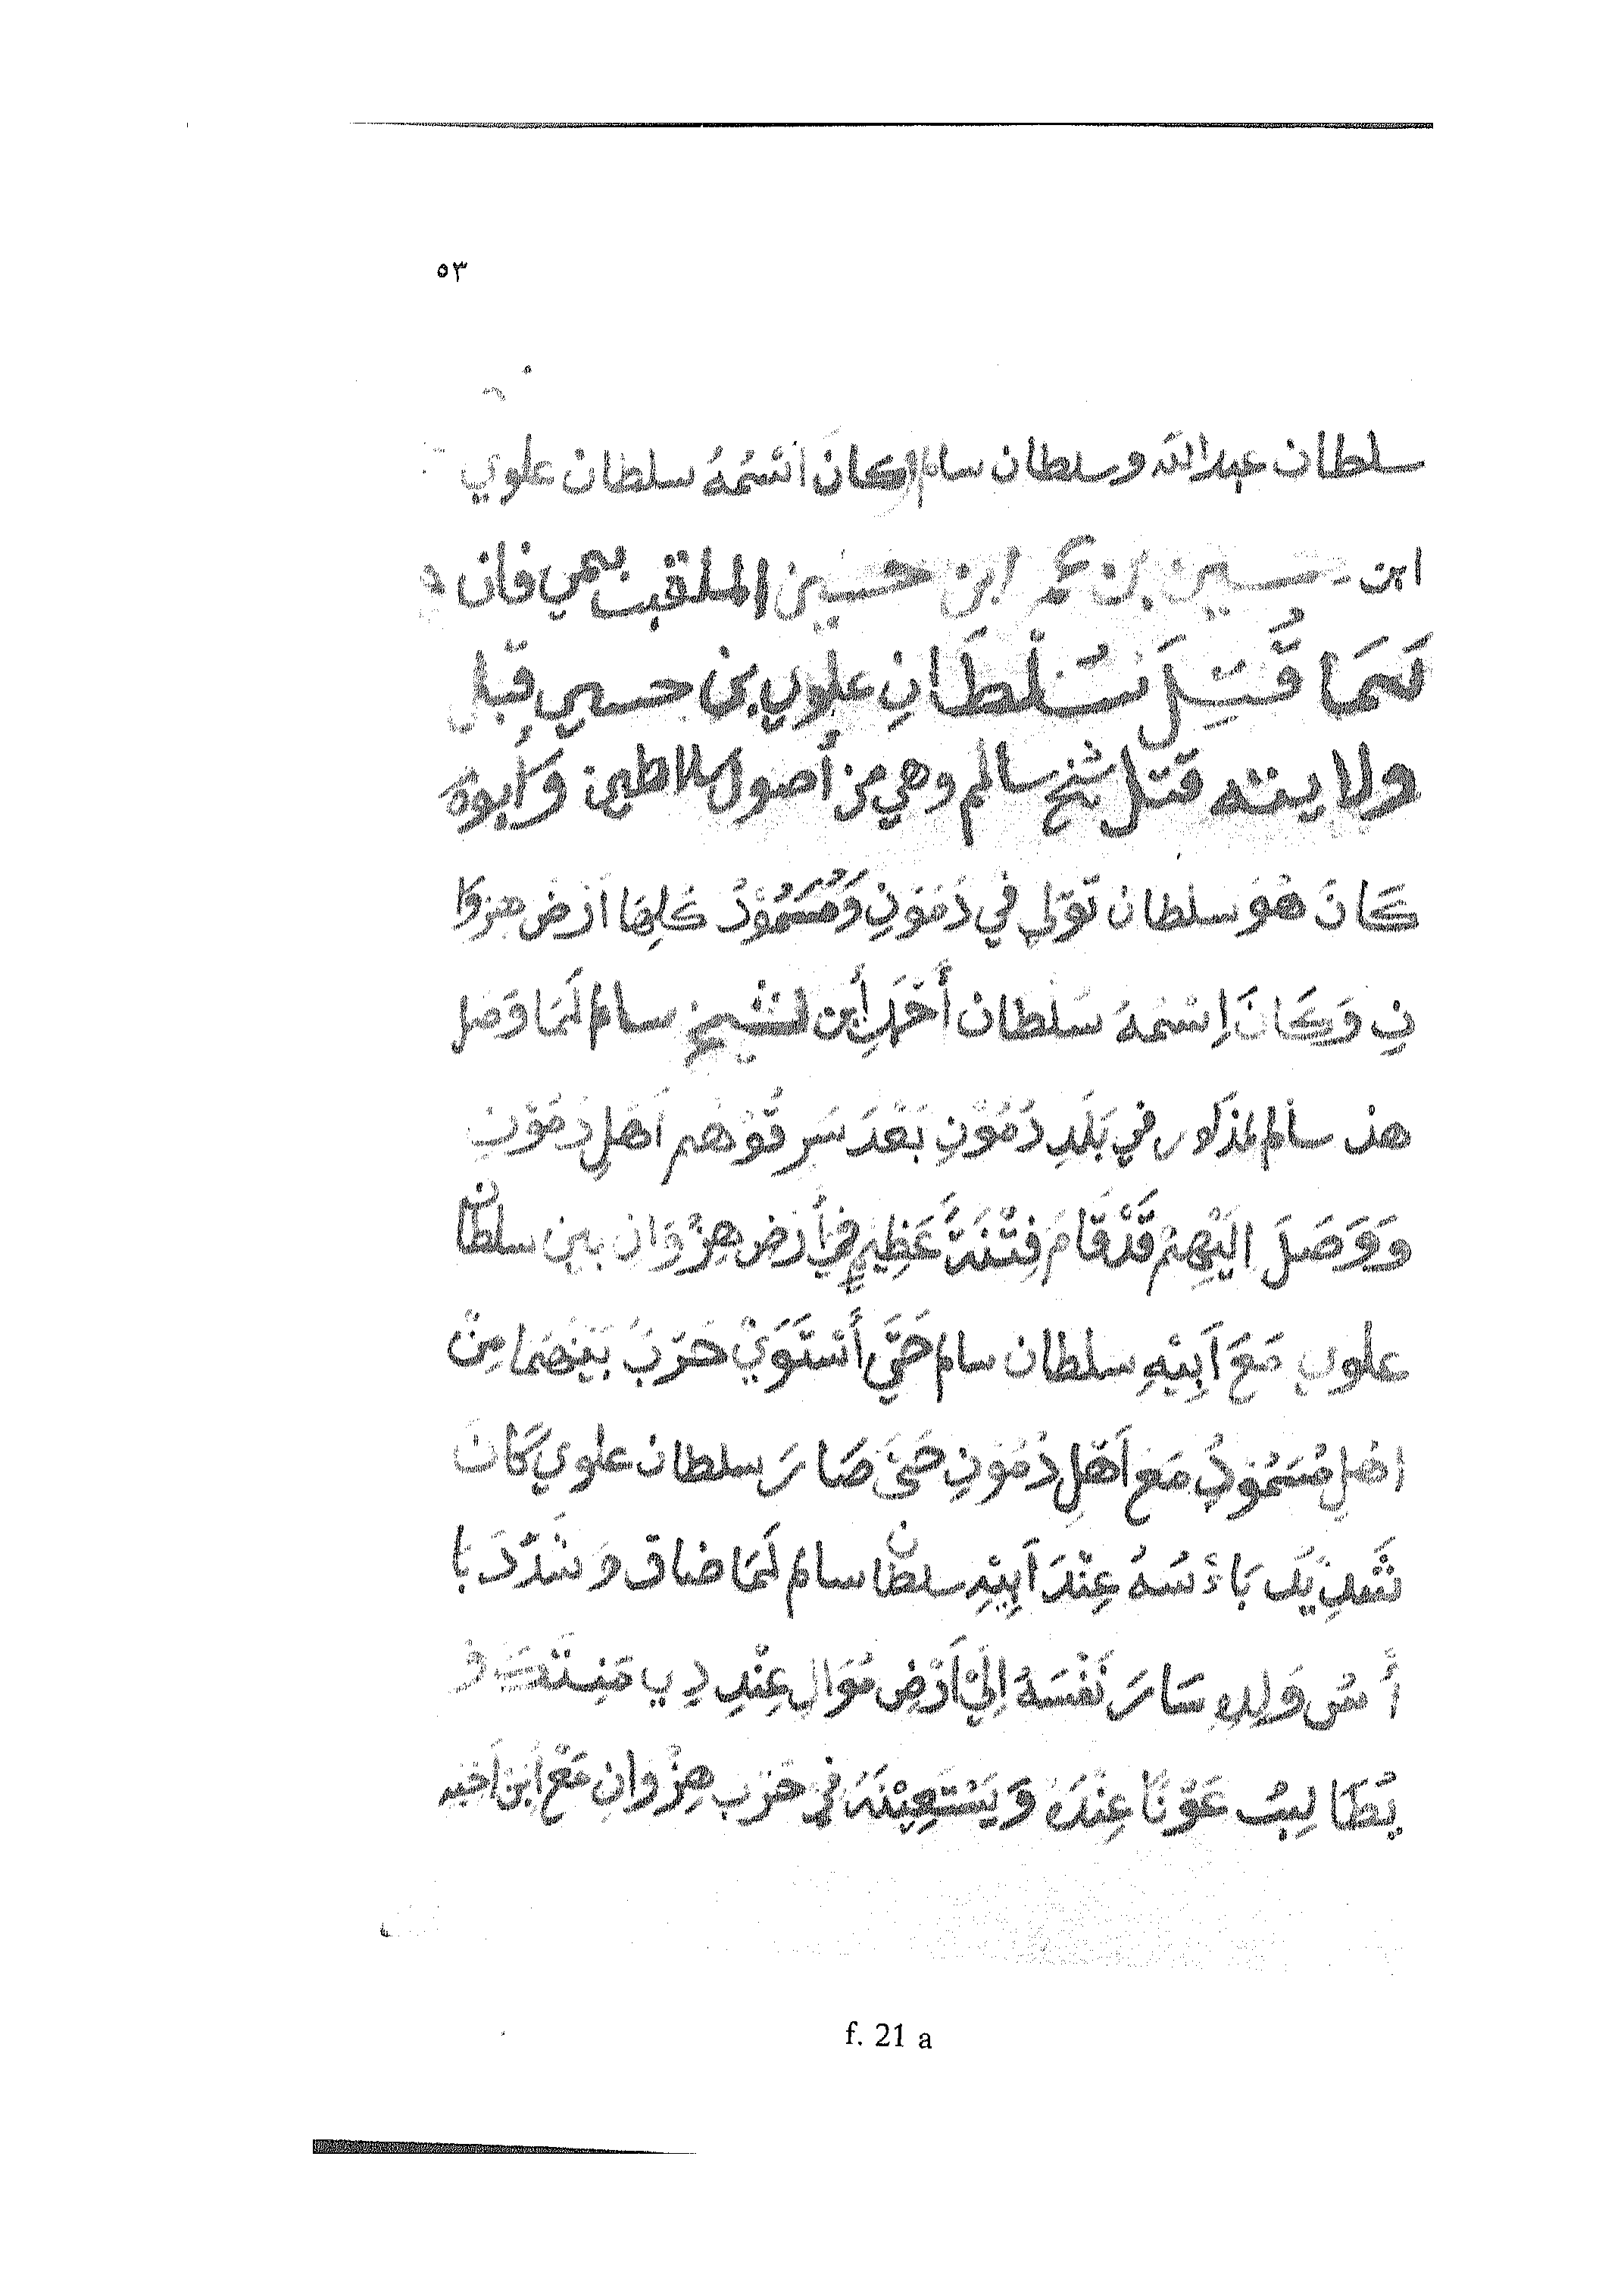 ٥٣
سلطان عبدالله وسلطان سالم كان اسْمُهُ سلطان علوي
ابن حسين بن ابن حسين الملقب فان
لَمَا قُتِلَ سُلْطَانِ علوي بن حسين قبل
ولايته قتل شيخ سالم وهي من أصول سلاطين وَأبوهُ
كَانَ هُوَ سلطان تَوَلي في دُمُوْنِ وَمُسَمُوْدُ كُلِهَا اَرْضِ هِزْوَا
نِ وَكَانَ اِسْمُهُ سُلطان أَحْمَدِ أبن لشيخ سالم لَمَا وَصَلَ
هذ سالم لمذكور في بَلَدِ دُمُوْنِ بَعْدَ سَرِقُوْهُم اَهْلِ دُمُوْنِ
وَوَصَلَ اِلَيْهِمْ قَدْ قَامَ فِتْنَةً عَظِيمٍ في أرْضِ هِزْوَانِ بين سلطان
علوي مَعَ اَبِيْهِ سلطان سالم حَتَّي أسْتَوَيْ حَرْبُ بَيْنَهُمَا مِنْ
اهْلِ مُسَمُوْدِ مَع اَهْلِ دُمُوْنِ حَتَّي صَارَ سلطان علوي كَانَ
شَدِيْد بَاءْسُهُ عِنْدَ اَبِيْهِ سلطان سالم لَمَا ضاق وَشَدَّدَ با
أسْ وَلِدِهِ سَارَ نَفْسَهُ اِلَيْ اَرْضِ مُوَالِ عِنْدِ
يُطَالِبُ عَوْنًا عِنْدَهُ وَيَسْتَعِيْنَهُ في حَرْبِ هِزْوَانِ مَعْ اَبن اَخيه
f. 21 a